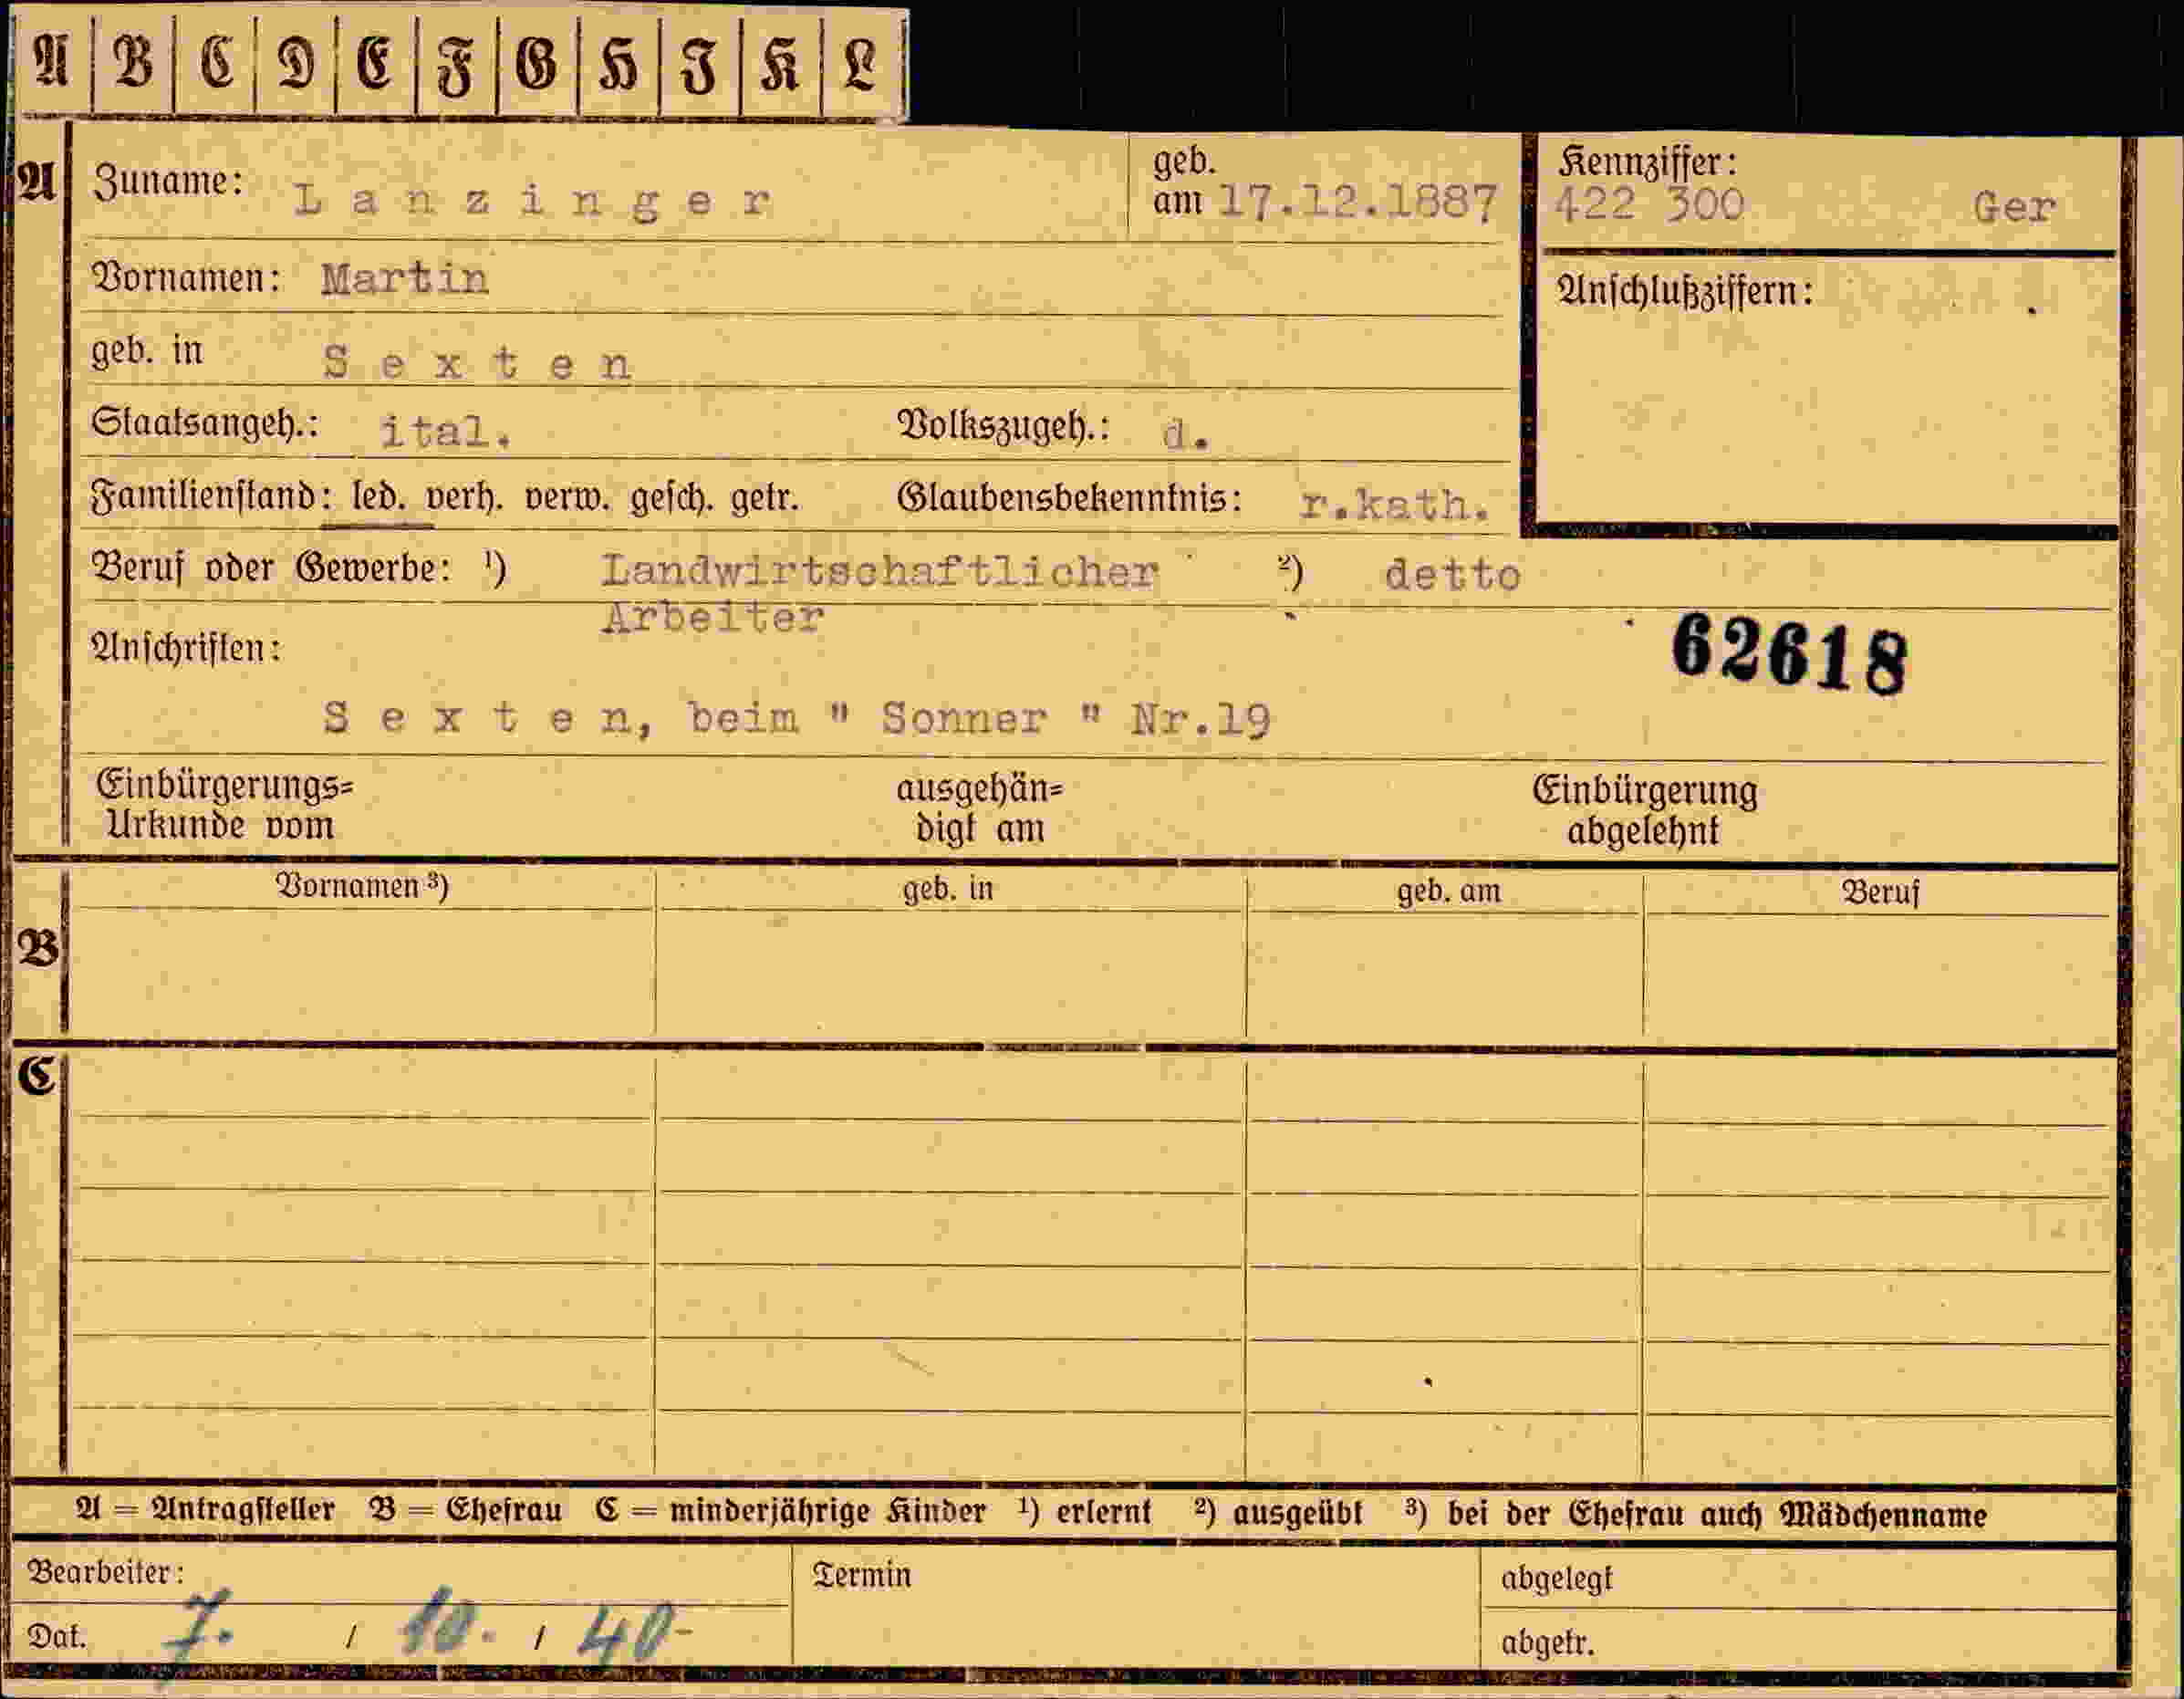 A B C D E F G H I K L
A Zuname: Lanzinger geb. am 17.12.1887 Kennziffer: 422 300 Ger
Vornamen: Martin Anschlußziffern:
geb. in Sexten
Staatsangeh.: ital. Volkszugeh.: d.
Familienstand: led. verh. verw. gesch. getr. Glaubensbekenntnis: r.kath.
Beruf oder Gewerbe: ¹) Landwirtschaftlicher ²) detto
Arbeiter
Anschriften: 62618
Sexten, beim " Sonner " Nr.19
Einbürgerungs= ausgehän= Einbürgerung
Urkunde vom digt am abgelehnt
Vornamen ³) geb. in geb. am Beruf
B
C
A = Antragsteller B = Ehefrau C = minderjährige Kinder ¹) erlernt ²) ausgeübt ³) bei der Ehefrau auch Mädchenname
Bearbeiter: Termin abgelegt
Dat. 7. / 10. / 40- abgetr.